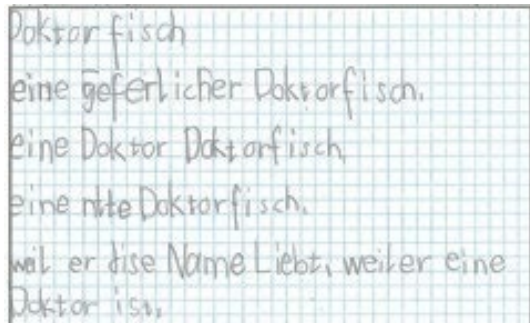 Doktorfisch
eine geferlicher Doktorfisch.
eine Doktor Doktorfisch
eine nite Doktorfisch.
weil er dise Name Liebt, weil er eine
Doktor ist.